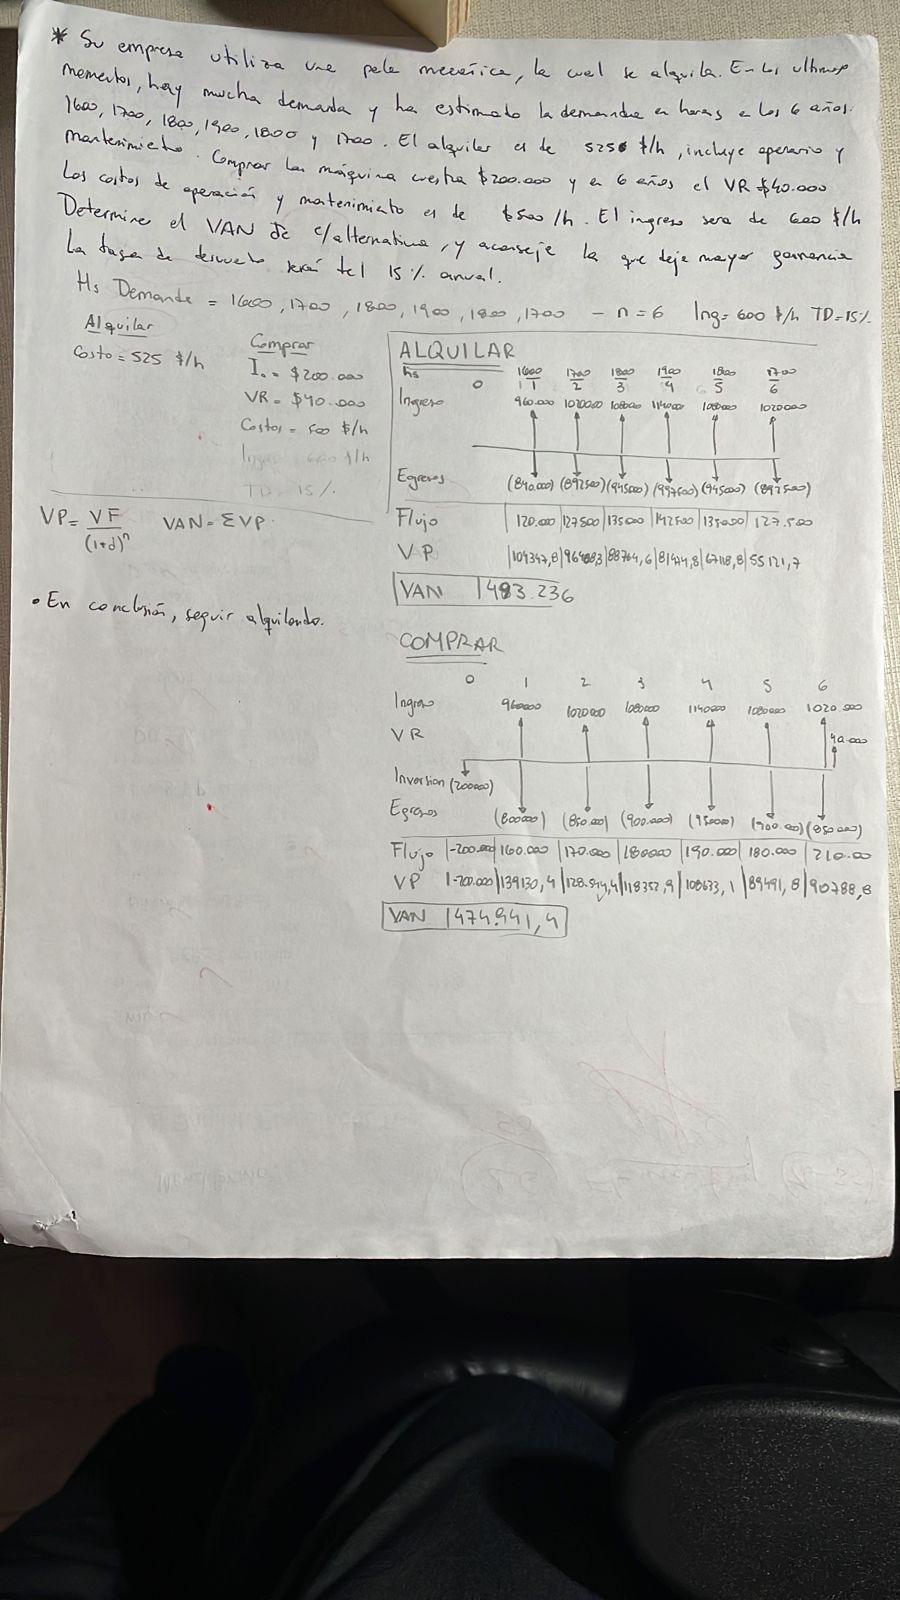 * Su empresa utiliza una pala mecánica, la cual se alquila. En los ultimos
momentos, hay mucha demanda y ha estimado la demanda en horas a los 6 años:
1600, 1700, 1800, 1900, 1800 y 1700. El alquiler es de 525 $/h, incluye operario y
mantenimiento. Comprar la máquina cuesta $200.000 y en 6 años el VR $40.000
Los costos de operación y mantenimiento es de $500/h. El ingreso sera de 600 $/h
Determine el VAN de c/alternativa, y aconseje la que deje mayor ganancia
La tasa de descuento será del 15% anual.
Hs Demanda = 1600, 1700, 1800, 1900, 1800, 1700 - n=6 Ing= 600 $/h TD=15%
Alquilar
Costo = 525 $/h
Comprar
I₀ = $200.000
VR = $40.000
Costos = 500 $/h
Ingr 600 $/h
TD = 15%
VP = VF/(1+d)ⁿ VAN = ΣVP
• En conclusión, seguir alquilando.
ALQUILAR
hs 1600 1700 1800 1900 1800 1700
0 1 2 3 4 5 6
Ingreso 960.000 1020000 1080000 1140000 1080000 1020000
Egresos (840.000) (892500) (945000) (997500) (945000) (892500)
Flujo 120.000 127500 135000 142500 135000 127.500
VP 104347,8 88764,6 67118,8 55121,7
VAN 493.236
COMPRAR
0 1 2 3 4 5 6
Ingreso 960000 1020000 1080000 1140000 1080000 1020 000
VR 40.000
Inversion (200000)
Egresos (800000) (850.000) (900.000) (950000) (900.000) (850000)
Flujo -200.000 160.000 170.000 180000 190.000 180.000 210.000
VP -200.000 139130,4 118352,9 108633,1 89491,8 90788,8
VAN 474.941,4